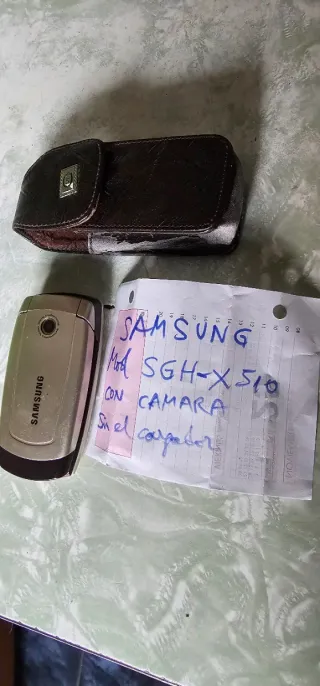 SAMSUNG
SAMSUNG
Mod SGH-X510
CON CAMARA
Sin el cargador